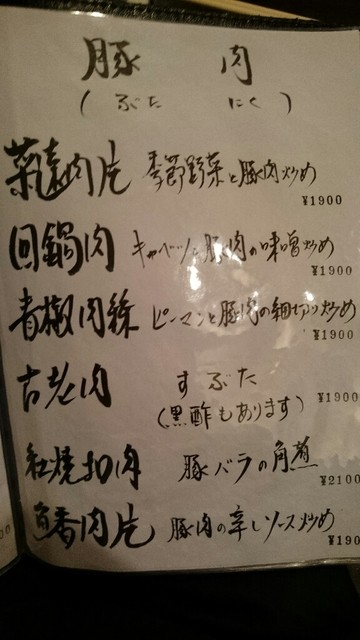 豚肉
(ぶた にく)
菜遠肉片 季節野菜と豚肉炒め
¥1900
回鍋肉 キャベツと豚肉の味噌炒め
¥1900
青椒肉絲 ピーマンと豚肉の細切り炒め
¥1900
古老肉 すぶた
¥1900
(黒酢もあります)
紅焼扣肉 豚バラの角煮
¥2100
魚香肉片 豚肉の辛しソース炒め
¥190